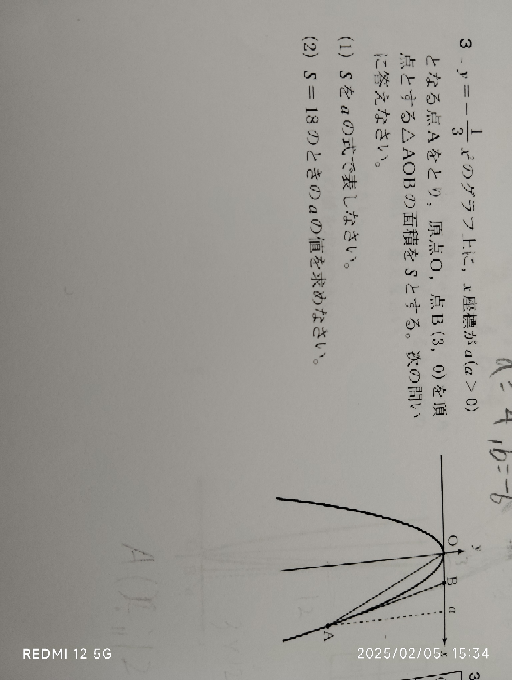 3. y=-1/3 x²のグラフ上に，x座標がa(a>0)
となる点Aをとり，原点O，点B(3, 0)を頂
点とする△AOBの面積をSとする。次の問い
に答えなさい。
(1) Sをaの式で表しなさい。
(2) S=18のときのaの値を求めなさい。
y
O
B
a
x
A
3
REDMI 12 5G
2025/02/05 15:34